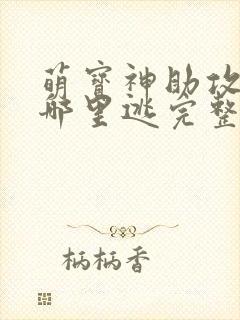 萌宝神助攻
哪里逃完整
柄柄香